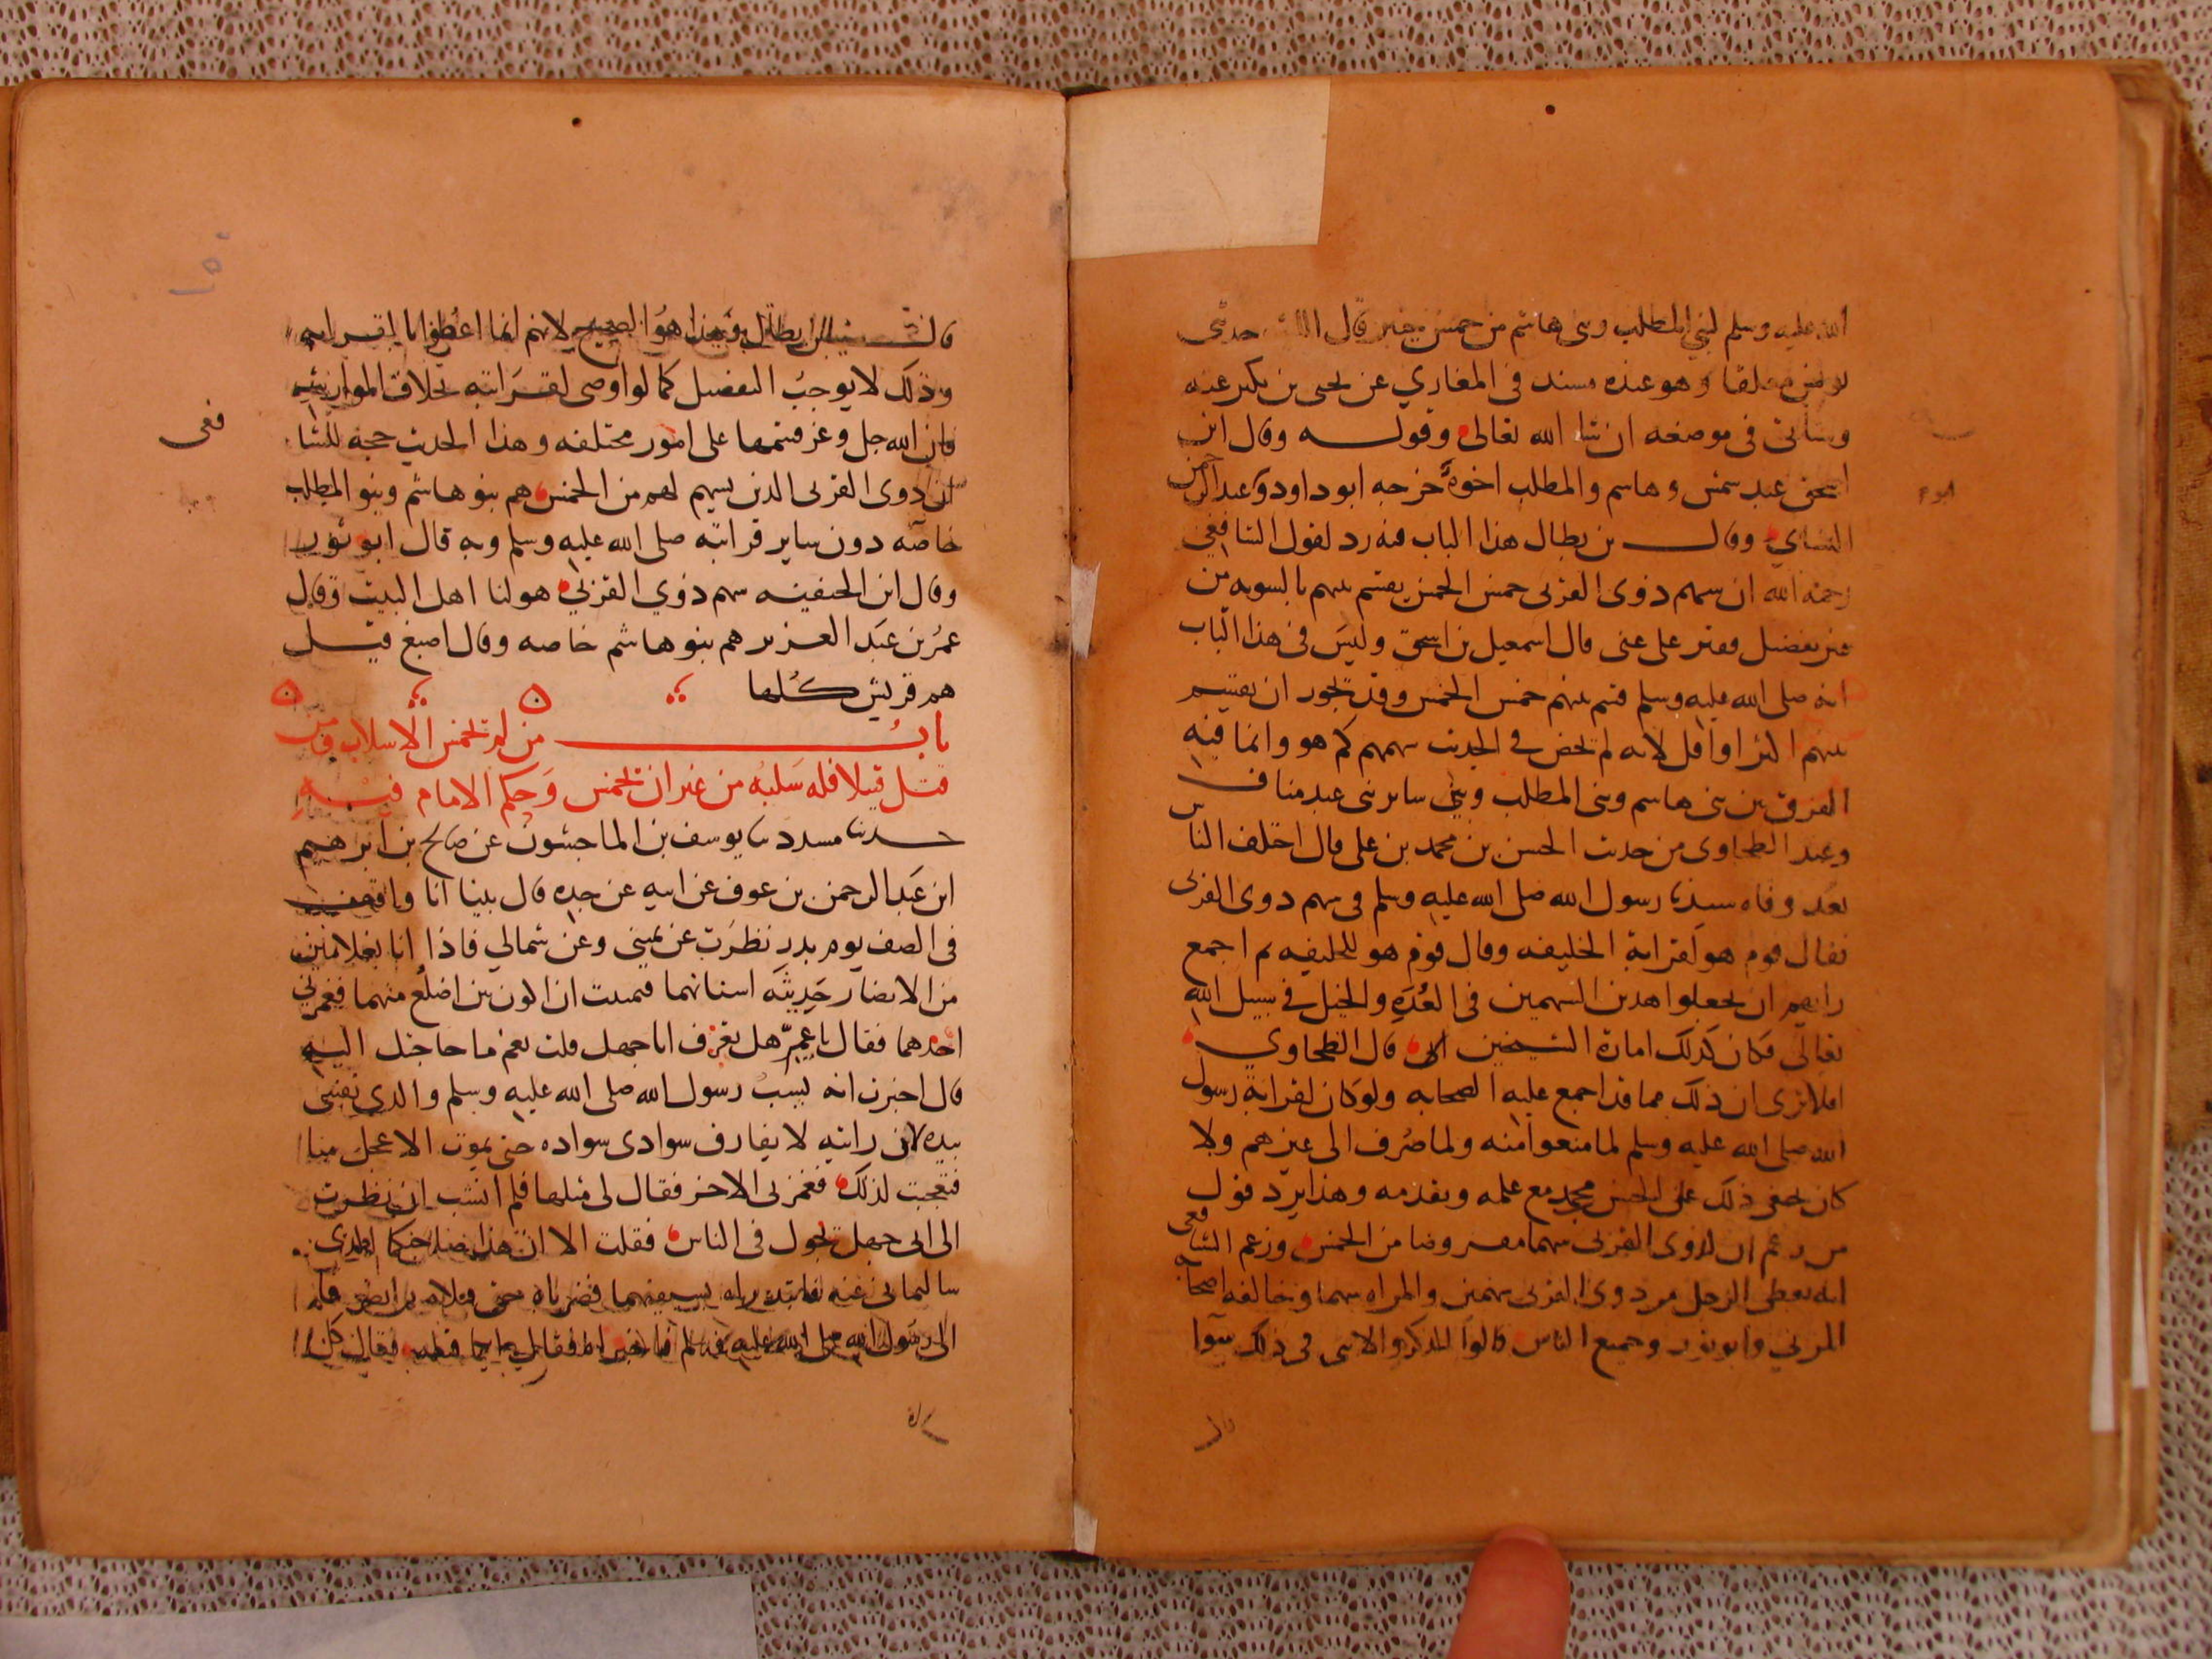 الله عليه وسلم لبني المطلب وبنى هاشم من خمس خيبر قال الليث حدثنى
يونس معلقا وهو عنده مسند فى المغازي عن يحيى بن بكير عنه
وسياتى فى موضعه ان شا الله تعالى وقوله وقال ابن
اسحق عبد شمس وهاسم والمطلب اخوة خرجه ابو داود وعبد الرحمن
النساي وقال بن بطال هذا الباب فيه رد لقول الشافعي
رحمه الله ان سهم ذوى القربى خمس الخمس يقسم بينهم بالسويه من
غير تفضيل فقير على غنى قال اسمعيل بن اسحق وليس فى هذا الباب
انه صلى الله عليه وسلم قسم بينهم خمس الخمس وقد يجوز ان يقسم
بينهم اكثر او اقل لانه لم يخص في الحديث سهمهم كم هو وانما فيه
الفرق بين بنى هاسم وبنى المطلب وبين ساير بنى عبد مناف
وعند الطحاوى من حديث الحسن بن محمد بن على قال اختلف الناس
بعد وفاه سيدنا رسول الله صلى الله عليه وسلم فى سهم ذوى القربى
فقال قوم هو لقرابة الخليفه وقال قوم هو للخليفه ثم اجمع
رايهم ان يجعلوا هذين السهمين فى العُدَة والخيل في سبيل الله
تعالى فكان كذلك امارة الشيخين قال الطحاوي
افلا ترى ان ذلك مما قد اجمع عليه الصحابه ولو كان لقرابة رسول
الله صلى الله عليه وسلم لما منعوا منه ولما صُرف الى غيرهم ولا
كان يخفى ذلك على الحسن بن محمد مع علمه وتقدمه وهذا يرد قول
من زعم ان لذوى القربى سهما مفروضا من الخمس وزعم الشافعى
انه يعطى الرجل من ذوى القربى سهمين والمراه سهما وخالفه اصحابه
المزني وابو ثور وجميع الناس قالوا الذكر والانثى فى ذلك سوآ
قال بن بطال وهذا هو الصحيح لانهم انما اعطوا بالقرابه
وذلك لا يوجب التفضيل كما لو اوصى لقرابته بخلاف المواريث
فان الله جل وعز قسمها على امور مختلفه وهذا الحديث حجه للشافعى
ان ذوى القربى الذين يسهم لهم من الخمس هم بنو هاشم وبنو المطلب
خاصة دون ساير قرابته صلى الله عليه وسلم وبه قال ابو ثور
وقال ابن الحنفيه سهم ذوي القربي هو لنا اهل البيت وقال
عمر بن عبد العزيز هم بنو هاشم خاصه وقال اصبغ قيل
هم قريش كلها
باب من لم يخمس الاسلاب ومن
قتل قتيلا فله سلبه من غير ان يخمس وحكم الامام فيه
حدثنا مسدد ثنا يوسف بن الماجشون عن صالح بن ابرهيم
ابن عبد الرحمن بن عوف عن ابيه عن جده قال بينا انا واقف
فى الصف يوم بدر نظرت عن يمينى وعن شمالي فاذا انا بغلامين
من الانصار حَديثَه اسنانهما فتمنيت ان اكون بين اضلع منهما فغمزني
احدهما فقال يا عم هل تعرف ابا جهل قلت نعم ما حاجتك اليه
قال اخبرت انه يسب رسول الله صلى الله عليه وسلم والذى نفسى
بيده لان رايته لا يفارق سوادى سواده حتى يموت الاعجل منا
فتعجبت لذلك فغمزنى الاخر فقال لى مثلها فلم انشب ان نظرت
الى ابى جهل يجول فى الناس فقلت الا ان هذا صاحبكما الذى
سالتمانى عنه فابتدراه بسيفهما فضرباه حتى قتلاه ثم انصرفا
الى رسول الله صلى الله عليه وسلم فاخبراه فقال ايكما قتله فقال كل